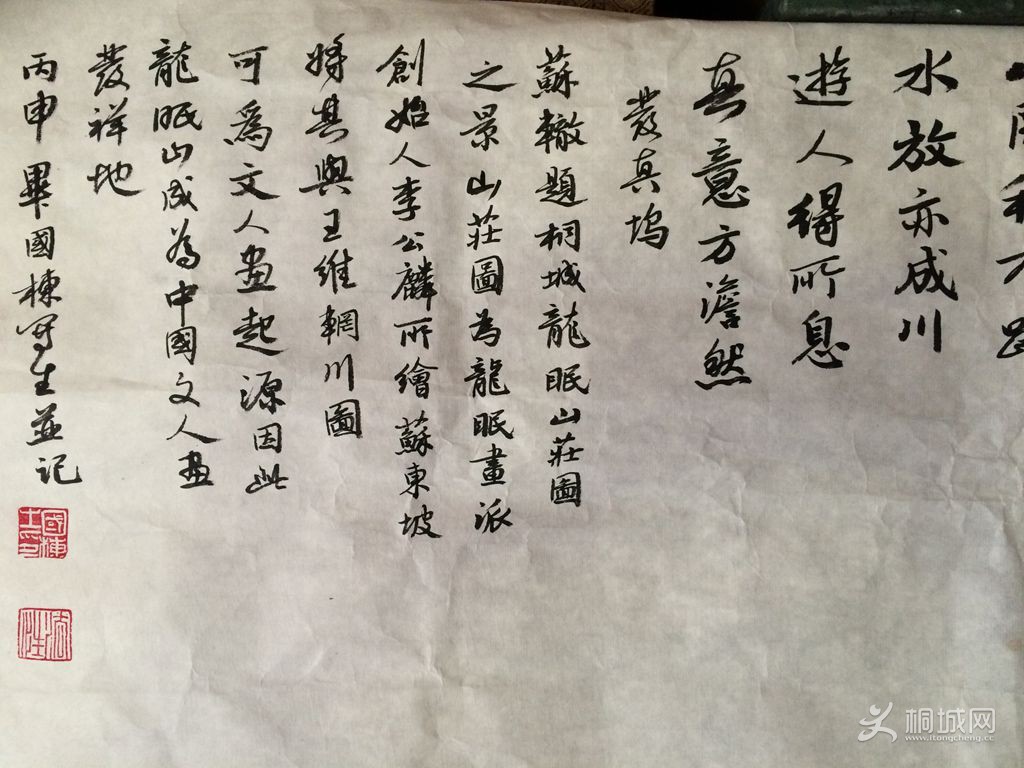 水放亦成川
遊人得所息
真意方澹然
裴真坞
蘇轍題桐城龍眠山莊圖
之景山莊圖為龍眠畫派
創始人李公麟所繪蘇東坡
将其與王維輞川圖
可爲文人畫起源因此
龍眠山成為中國文人畫
發祥地
丙申畢國棟写生並记
桐城网
www.itongcheng.cc